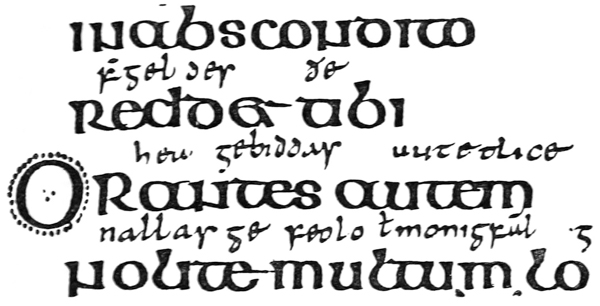 inabscondito
f̄geldes ðe
reddet tibi
gebiddas uutedlice
Orantes autem
nallas ge feolo ł
nolite multum lo